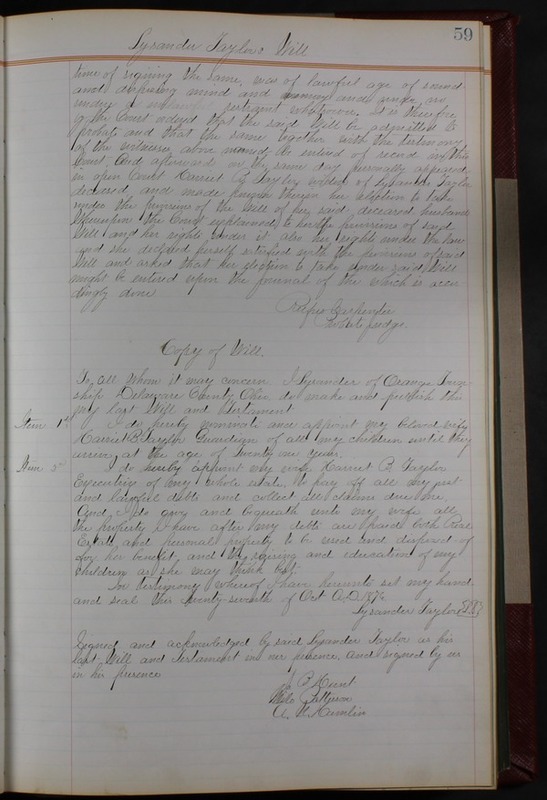 59
Lysander Taylors Will
time of signing the same, was of lawful age of sound
and disposing mind and memory and under no
undue or restraint whatever. It is therefore
by the Court ordered that the said Will be admitted to
probate and that the same together with the testimony
of the witnesses above named be entered of record in this
Court. And afterward on the same day personally appeared
in open Court Harriet B Taylor widow of Lysander Taylor
deceased, and made known therein her election to take
under the provisions of the Will of her said deceased husband
Whereupon the Court explained to her the provisions of said
Will and her rights under it also her rights under the law
and she declared herself satisfied with the provisions of said
Will and asked that her election to take under said Will
might be entered upon the journal of the which is accor
dingly done
Rufus Carpenter
Probate judge.
Copy of Will.
To all whom it may concern I Lysander of Orange Town
ship Delaware County Ohio do make and publish this
my last Will and Testament
Item 1st I do hereby nominate and appoint my beloved wife
Harriet B. Taylor Guardian of all my children until they
arrive at the age of twenty one years.
Item I do hereby appoint my wife Harriet B. Taylor
Executrix of my whole estate, to pay off all my just
and lawful debts and collect all claims due me,
And, I do give and bequeath unto my wife all
the property I have after my debts are paid both Real
Estate and personal property to be used and disposed of
for her benefit, and the raising and education of my
children as she may think best.
In testimony whereof I have hereunto set my hand
and seal this twenty-seventh of Oct A.D. 1876
Lysander Taylor
Signed and acknowledged by said Lysander Taylor as his
last Will and Testament in our presence, and signed by us
in his presence
Patterson
A. Hamlin